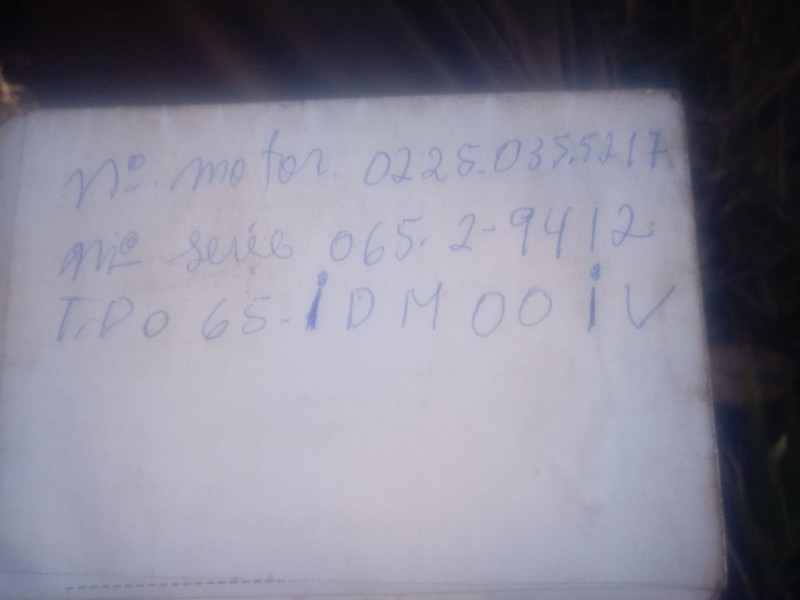 Nº. motor. 0225.035.5217
Nº serie 065.2-9412
TiPo 65-iDM00iV